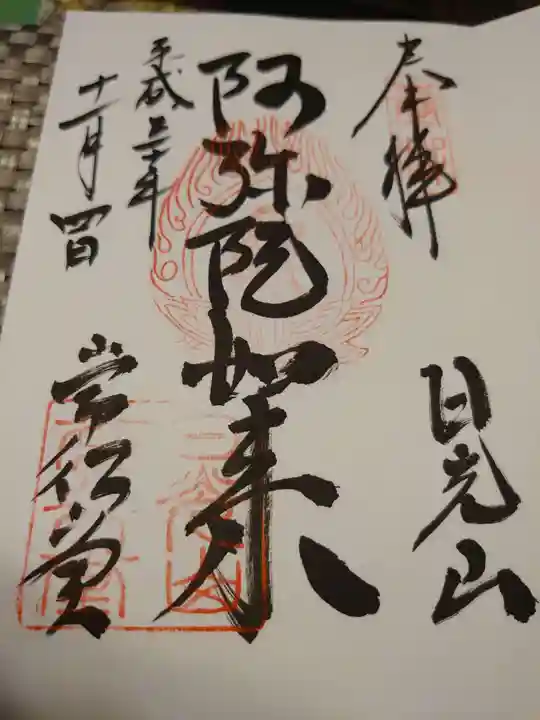 奉拝
日光山
阿弥陀如来
平成三十年
十一月四日
常行堂